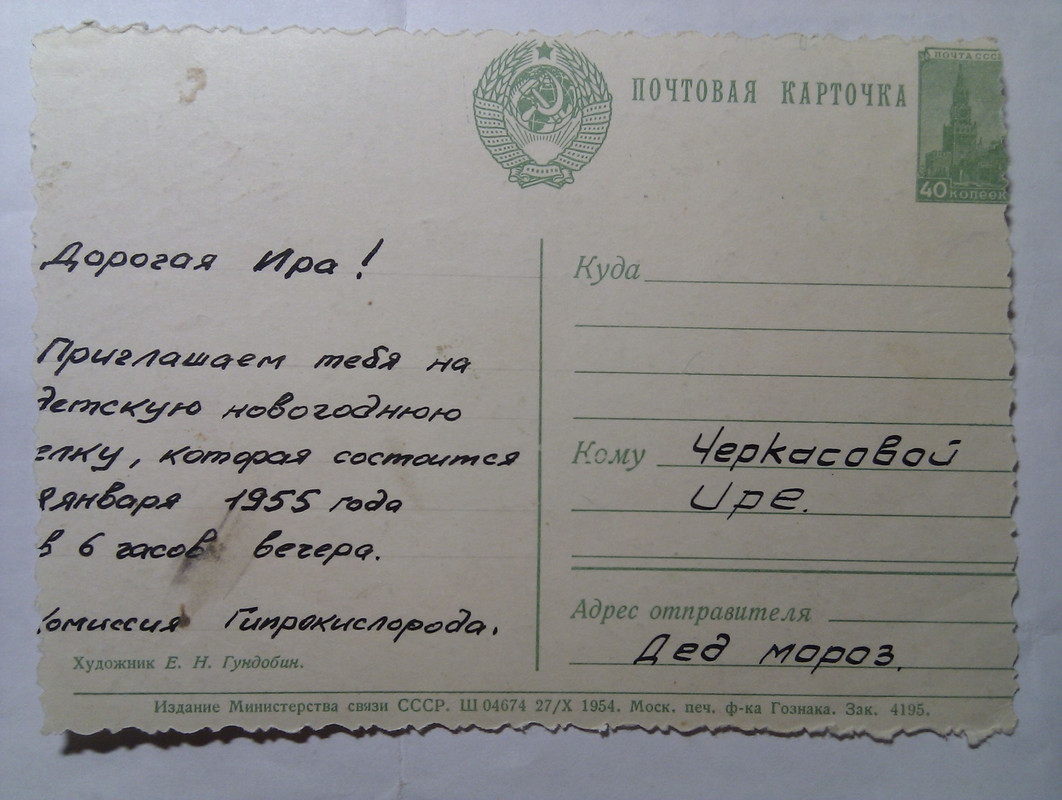 ПОЧТА СССР
ПОЧТОВАЯ КАРТОЧКА
40 копеек
Дорогая Ира!
Приглашаем тебя на
детскую новогоднюю
елку, которая состоится
января 1955 года
в 6 часов вечера.
Комиссия Гипрокислорода.
Художник Е. Н. Гундобин.
Куда
Кому Черкасовой
Ире.
Адрес отправителя
Дед мороз.
Издание Министерства связи СССР. Ш 04674 27/X 1954. Моск. печ. ф-ка Гознака. Зак. 4195.